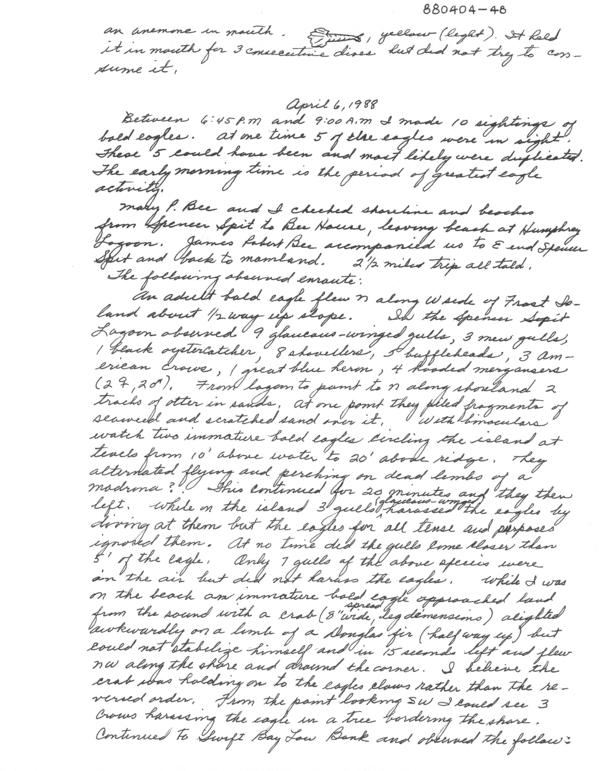 880404-48
an anemone in mouth. , yellow (light). It held
it in mouth for 3 consecutive dives but did not try to con-
sume it.
April 6, 1988
Between 6:45 P.M and 9:00 A.M I made 10 sightings of
bald eagles. At one time 5 of the eagles were in sight.
These 5 could have been and most likely were duplicated.
The early morning time is the period of greatest eagle
activity.
Mary P. Bee and I checked shoreline and beaches
from Spencer Spit to Bee House, leaving beach at Humphrey
Lagoon. James Robert Bee accompanied us to E end Spencer
Spit and back to mainland. 2 1/2 miles trip all told.
The following observed enroute:
An adult bald eagle flew N along W side of Frost Is-
land about 1/2 way up slope. In the Spencer Spit
Lagoon observed 9 glaucous-winged gulls, 3 mew gulls,
1 black oystercatcher, 8 shovellers, 5 buffleheads, 3 Am-
erican crows, 1 great blue heron, 4 hooded mergansers
(2♀, 2♂). From lagoon to point to N along shoreland 2
tracks of otter in sands. At one point they piled fragments of
seaweed and scratched sand over it. With binoculars
watch two immature bald eagles circling the island at
levels from 10' above water to 20' above ridge. They
alternated flying and perching on dead limbs of a
madrona?. This continued for 20 minutes and they then
left. While on the island 3 gulls (glaucous-winged) harassed the eagles by
diving at them but the eagles for all tense and purposes
ignored them. At no time did the gulls come closer than
5' of the eagle. Only 7 gulls of the above species were
in the air but did not harass the eagles. While I was
on the beach an immature bald eagle approached land
from the sound with a crab (8" wide, spread leg dimensions) alighted
awkwardly on a limb of a Douglas fir (half way up) but
could not stabilize himself and in 15 seconds left and flew
NW along the shore and around the corner. I believe the
crab was holding on to the eagles claws rather than the re-
versed order. From the point looking SW I could see 3
crows harassing the eagle in a tree bordering the shore.
Continued to Swift Bay Low Bank and observed the follow: